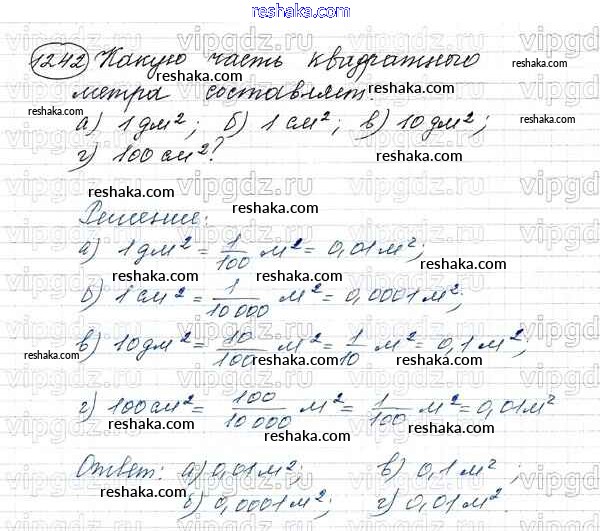 reshaka.com
1242 Какую часть квадратного
метра составляет:
а) 1 дм²; б) 1 см²; в) 10 дм²;
г) 100 см²?
Решение:
а) 1 дм² = 1/100 м² = 0,01 м²;
б) 1 см² = 1/10 000 м² = 0,0001 м²;
в) 10 дм² = 10/100 м² = 1/10 м² = 0,1 м²;
г) 100 см² = 100/10 000 м² = 1/100 м² = 0,01 м²
Ответ: а) 0,01 м²; в) 0,1 м²;
б) 0,0001 м²; г) 0,01 м².
vipgdz.ru